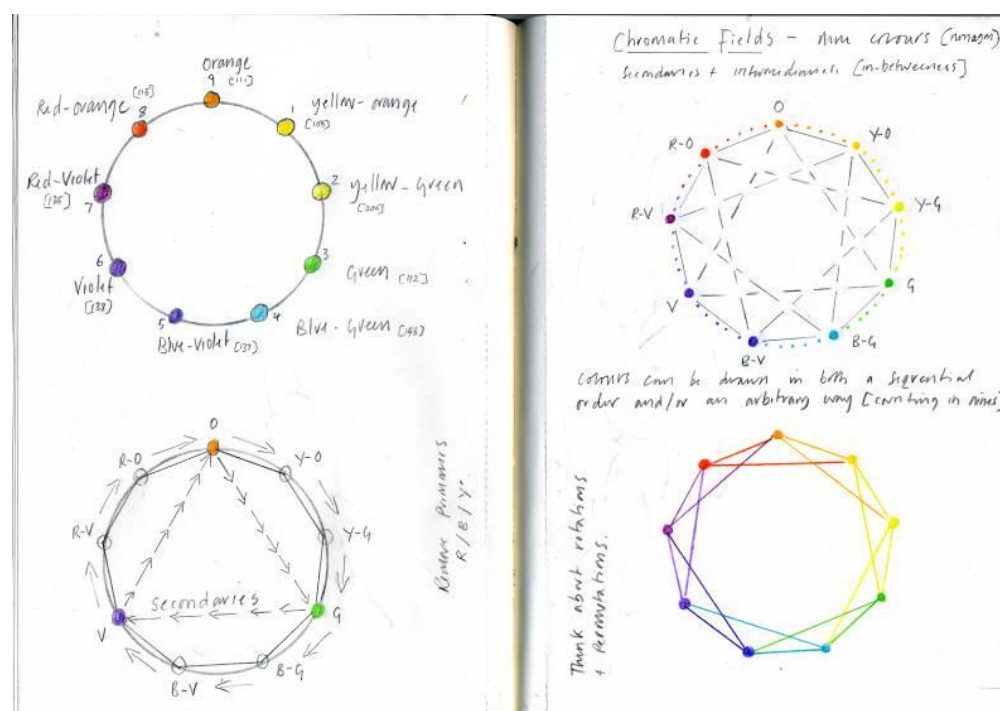 Orange
9 [111]
Red-orange [115]
8
1 yellow-orange
[109]
Red-Violet
7
2 yellow-Green
[205]
6
Violet
[138]
3
Green [112]
5
Blue-Violet [137]
4
Blue-Green
O
R-O
Y-O
R-V
Y-G
secondaries
V
G
B-V
B-G
Remove Primaries
R/B/Y.
Chromatic Fields - nine colours [nonagon]
Secondaries + intermediaries [in-betweeness]
O
R-O
Y-O
R-V
Y-G
V
G
B-V
B-G
colours can be drawn in both a sequential
order and/or an arbitrary way [counting in nines]
Think about rotations
+ Permutations.